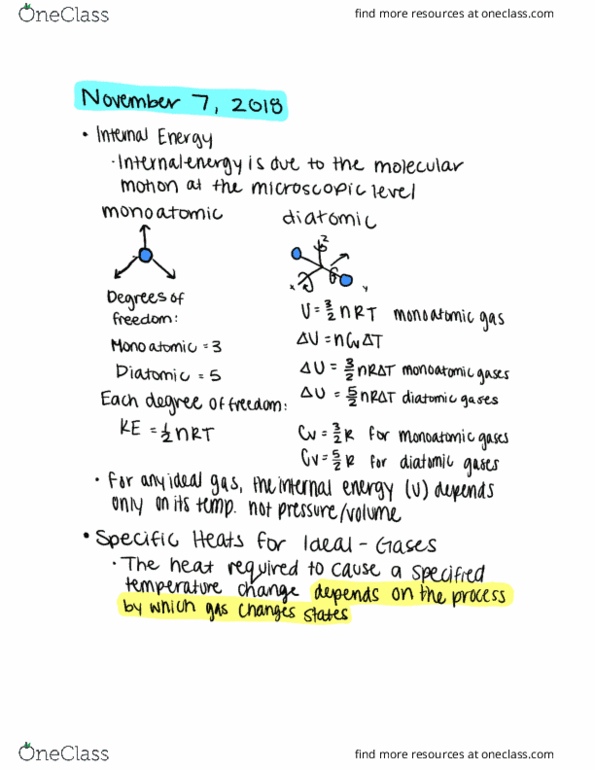 OneClass
find more resources at oneclass.com
November 7, 2018
• Internal Energy
· Internal energy is due to the molecular
motion at the microscopic level
monoatomic
diatomic
z
x
y
Degrees of
freedom:
Monoatomic = 3
Diatomic = 5
Each degree of freedom:
KE = 1/2 nRT
U = 3/2 nRT monoatomic gas
ΔU = nCvΔT
ΔU = 3/2 nRΔT monoatomic gases
ΔU = 5/2 nRΔT diatomic gases
Cv = 3/2 R for monoatomic gases
Cv = 5/2 R for diatomic gases
• For any ideal gas, the internal energy (U) depends
only on its temp. not pressure/volume
• Specific Heats for Ideal - Gases
· The heat required to cause a specified
temperature change depends on the process
by which gas changes states
OneClass
find more resources at oneclass.com